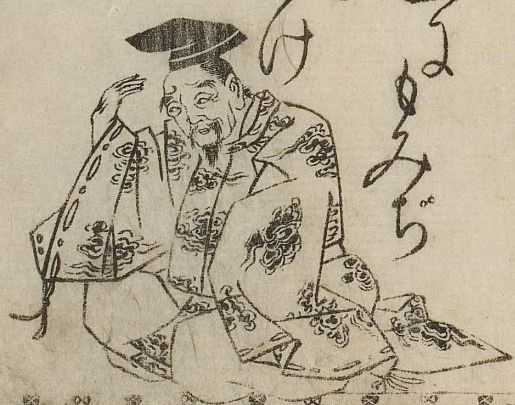 にもみぢ
け